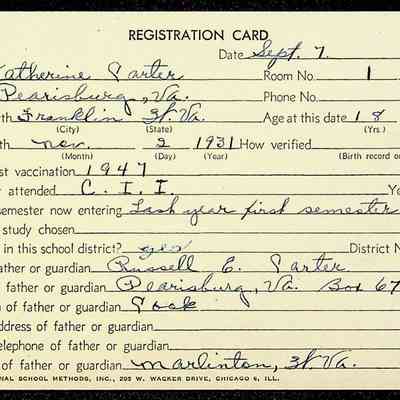 REGISTRATION CARD
Date Sept. 7.
Katherine Carter Room No. 1
Pearisburg, Va. Phone No.
th Franklin W. Va. Age at this date 18
(City) (State) (Yrs.)
th Nov. 2 1931 How verified
(Month) (Day) (Year) (Birth record or
st vaccination 1947
r attended C. I. I. Ye
semester now entering Last year first semester
rse of study chosen
in this school district? yes District N
ather or guardian Russell E. Carter
f father or guardian Pearisburg, Va. Box 67
n of father or guardian Cook
address of father or guardian
elephone of father or guardian
of father or guardian Marlinton, W. Va.
NAL SCHOOL METHODS, INC., 205 W. WACKER DRIVE, CHICAGO 6, ILL.